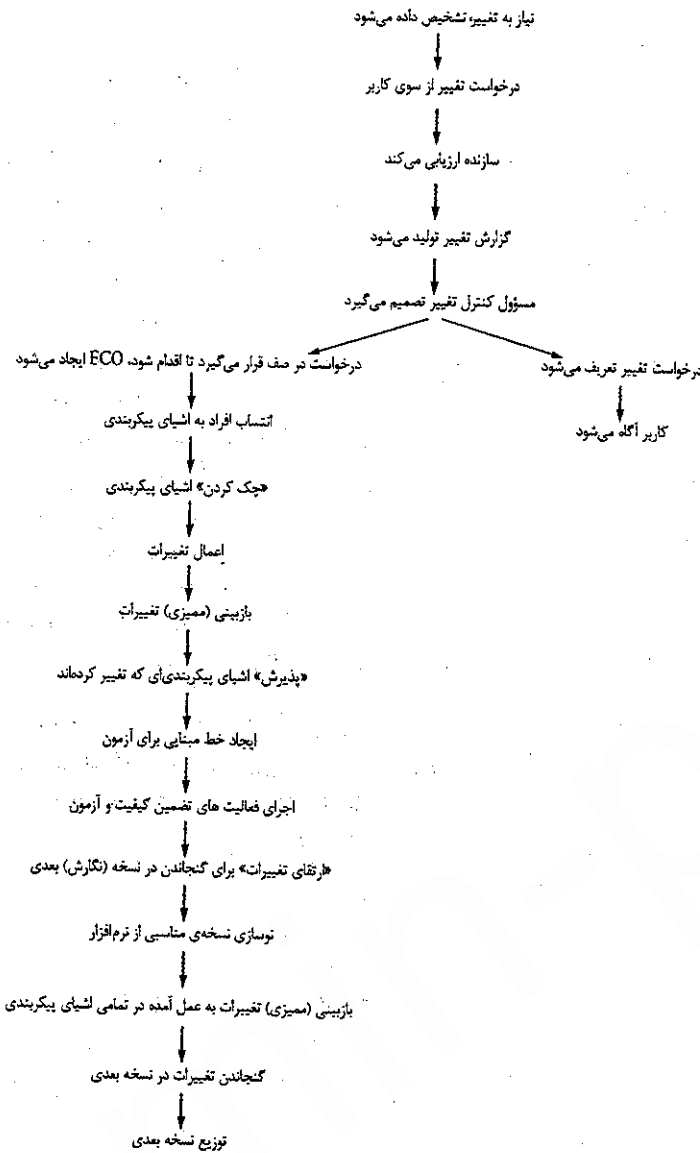 نیاز به تغییر، تشخیص داده می‌شود
درخواست تغییر از سوی کاربر
سازنده ارزیابی می‌کند
گزارش تغییر تولید می‌شود
مسؤول کنترل تغییر تصمیم می‌گیرد
درخواست تغییر تعریف می‌شود
کاربر آگاه می‌شود
درخواست در صف قرار می‌گیرد تا اقدام شود، ECO ایجاد می‌شود
انتساب افراد به اشیای پیکربندی
«چک کردن» اشیای پیکربندی
اعمال تغییرات
بازبینی (ممیزی) تغییرات
«پذیرش» اشیای پیکربندی‌ای که تغییر کرده‌اند
ایجاد خط مبنایی برای آزمون
اجرای فعالیت های تضمین کیفیت و آزمون
«ارتقای تغییرات» برای گنجاندن در نسخه (نگارش) بعدی
نوسازی نسخه‌ی مناسبی از نرم‌افزار
بازبینی (ممیزی) تغییرات به عمل آمده در تمامی اشیای پیکربندی
گنجاندن تغییرات در نسخه بعدی
توزیع نسخه بعدی